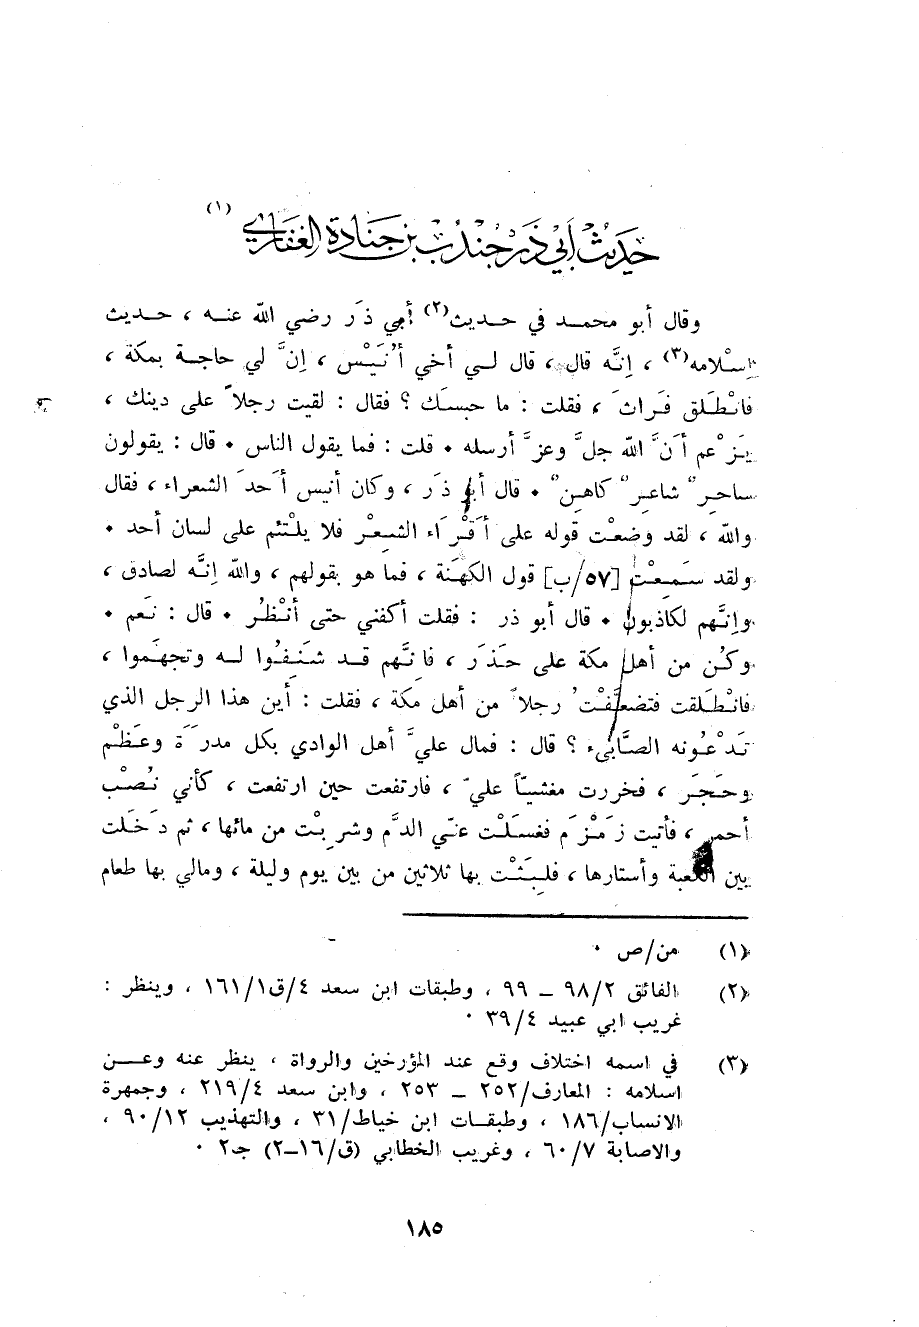 حديث أبي ذر جندب بن جنادة الغفاري (١)
وقال أبو محمد في حديث(٢) أبي ذَر رضي الله عنه ، حديث
إسْلامه(٣) ، إنَّه قال ، قال لي أخي أُنَيْس ، إنَّ لي حاجة بمكة ،
فانْطلق فَراثَ ، فقلت : ما حبسَك ؟ فقال : لقيت رجلاً على دينك ،
يَزْعم أنَّ الله جلَّ وعزَّ أرسله ٠ قلت : فما يقول الناس ٠ قال : يقولون
ساحِرٌ شاعِرٌ كاهِنٌ ٠ قال أبو ذَر ، وكان أنيس أحَدَ الشعراء ، فقال
والله ، لقد وضعْت قوله على أقْرَاء الشِعْر فلا يلْتئم على لسان أحد ٠
ولقد سَمِعْتُ [٥٧/ب] قول الكهَنة ، فما هو بقولهم ، والله إنَّه لصادق ،
وإنَّهم لكاذبون ٠ قال أبو ذر : فقلت أكفني حتى أنْظُر ٠ قال : نَعم ٠
وكُن من أهل مكة على حَذَر ، فانَّهم قد شَنِفُوا له وتجهَّموا ،
فانْطَلقت فتضعَّفْتُ رجلاً من أهل مكة ، فقلت : أين هذا الرجل الذي
تَدْعُونه الصَّابىء ؟ قال : فمال عليَّ أهل الوادي بكل مدرَة وعَظْم
وحَجَر ، فخررت مغشيّاً عليّ ، فارتفعت حين ارتفعت ، كأني نُصْب
أحمر ، فأتيت زَمْزَم فغسَلْت عنّي الدَّم وشرِبْت من مائها ، ثم دَخَلت
بين الكعبة وأستارها ، فلَبِثْت بها ثلاثين من بين يوم وليلة ، ومالي بها طعام
(١) من/ص ٠
(٢) الفائق ٩٨/٢ ــ ٩٩ ، وطبقات ابن سعد ٤/ق١٦١/١ ، وينظر :
غريب ابي عبيد ٣٩/٤ ٠
(٣) في اسمه اختلاف وقع عند المؤرخين والرواة ، ينظر عنه وعن
اسلامه : المعارف/٢٥٢ ــ ٢٥٣ ، وابن سعد ٢١٩/٤ ، وجمهرة
الانساب/١٨٦ ، وطبقات ابن خياط/٣١ ، والتهذيب ٩٠/١٢ ،
والاصابة ٦٠/٧ ، وغريب الخطابي (ق/١٦-٢) جـ٢ ٠
١٨٥